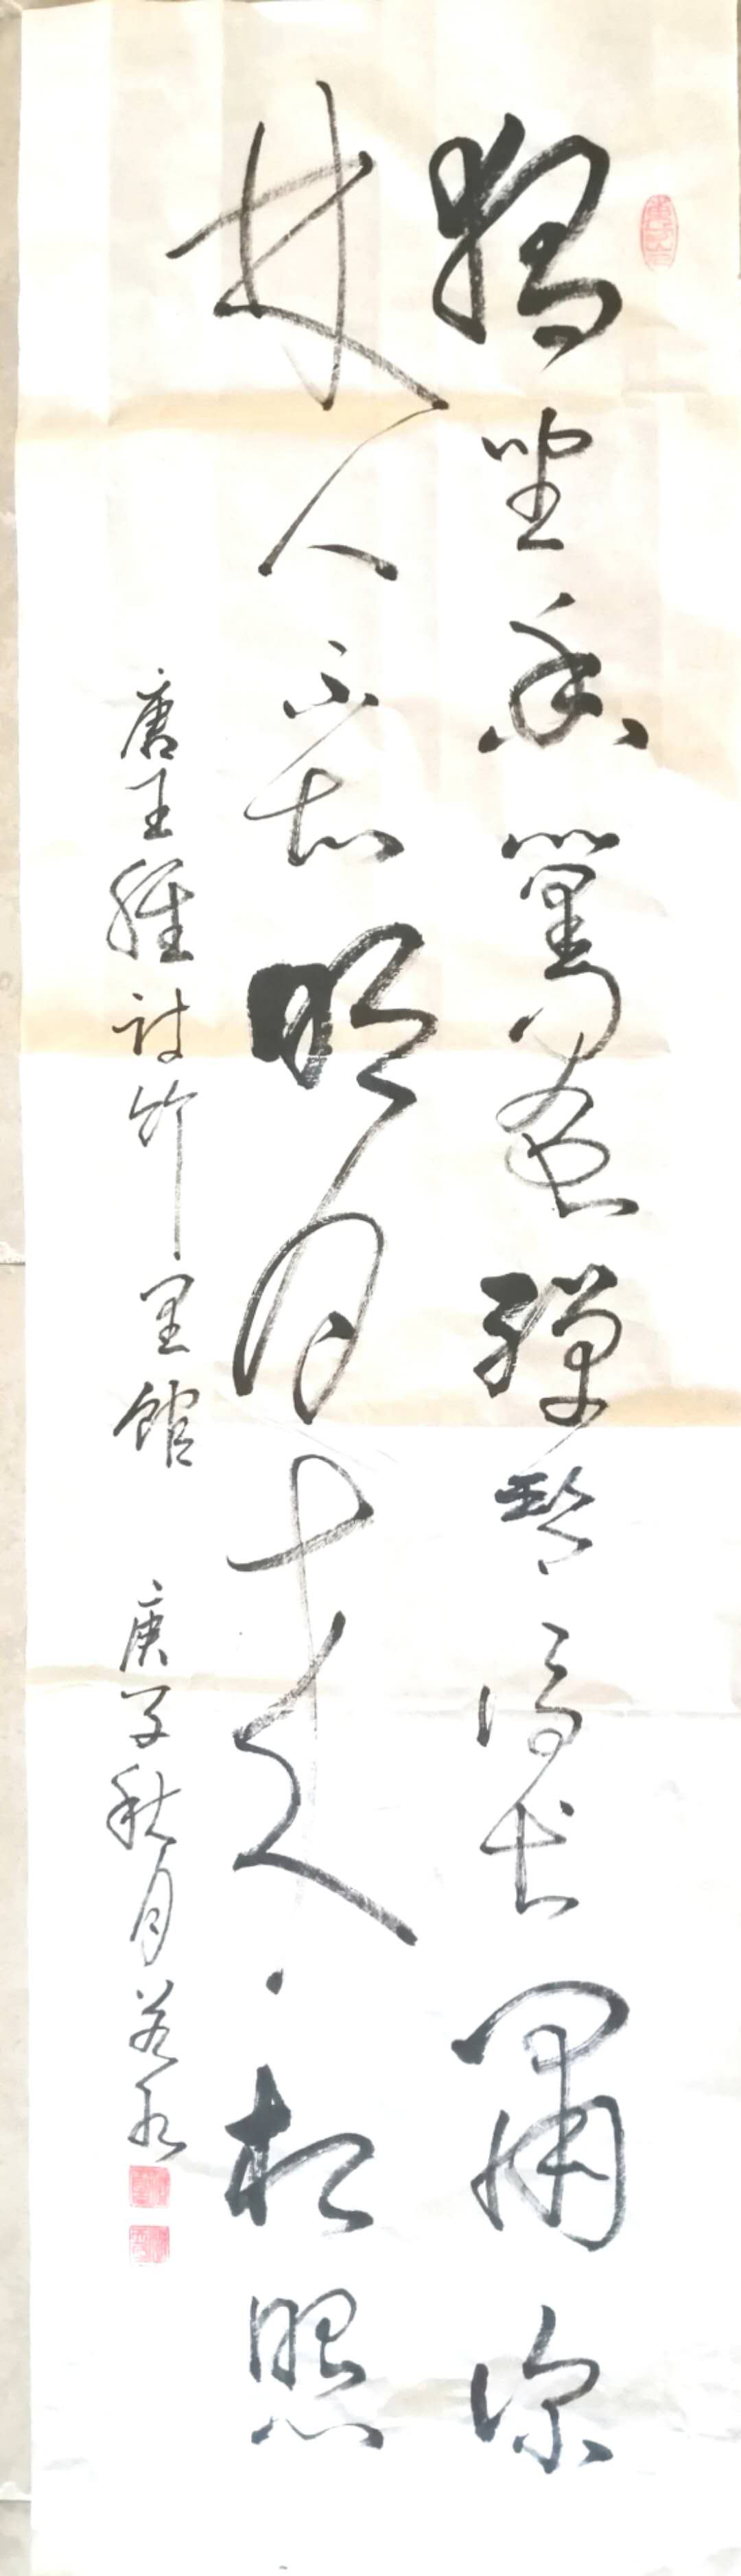 獨坐幽篁裏彈琴復長嘯深
林人不知明月来相照
唐王維詩竹里館 庚子秋月若水